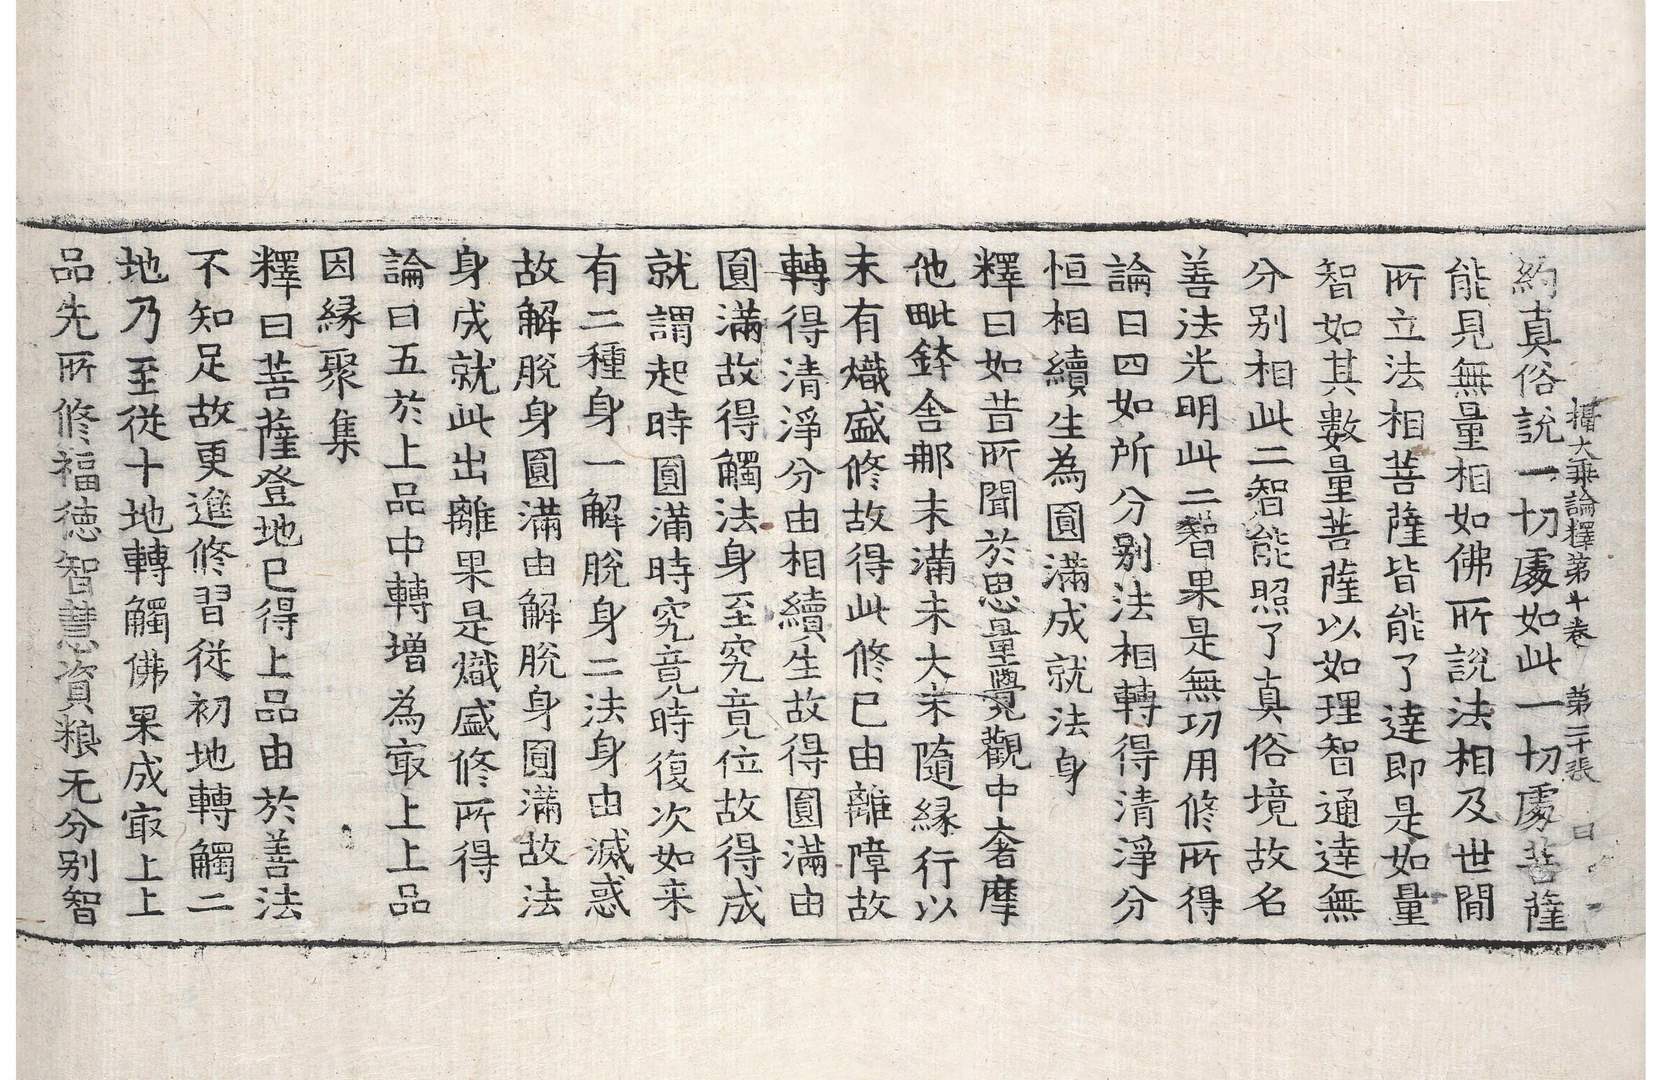 攝大乘論釋第十卷 第二十張 曰
約真俗說一切處如此一切處菩薩
能見無量相如佛所說法相及世間
所立法相菩薩皆能了達即是如量
智如其數量菩薩以如理智通達無
分别相此二智能照了真俗境故名
善法光明此二智果是無功用修所得
論曰四如所分别法相轉得清淨分
恒相續生為圓滿成就法身
釋曰如昔所聞於思量覺觀中奢摩
他毗鉢舍那未滿未大未隨緣行以
未有熾盛修故得此修已由離障故
轉得清淨分由相續生故得圓滿由
圓滿故得觸法身至究竟位故得成
就謂起時圓滿時究竟時復次如来
有二種身一解脫身二法身由滅惑
故解脫身圓滿由解脫身圓滿故法
身成就此出離果是熾盛修所得
論曰五於上品中轉增為㝡上上品
因緣聚集
釋曰菩薩登地已得上品由於善法
不知足故更進修習従初地轉觸二
地乃至従十地轉觸佛果成㝡上上
品先所修福德智慧資粮无分别智